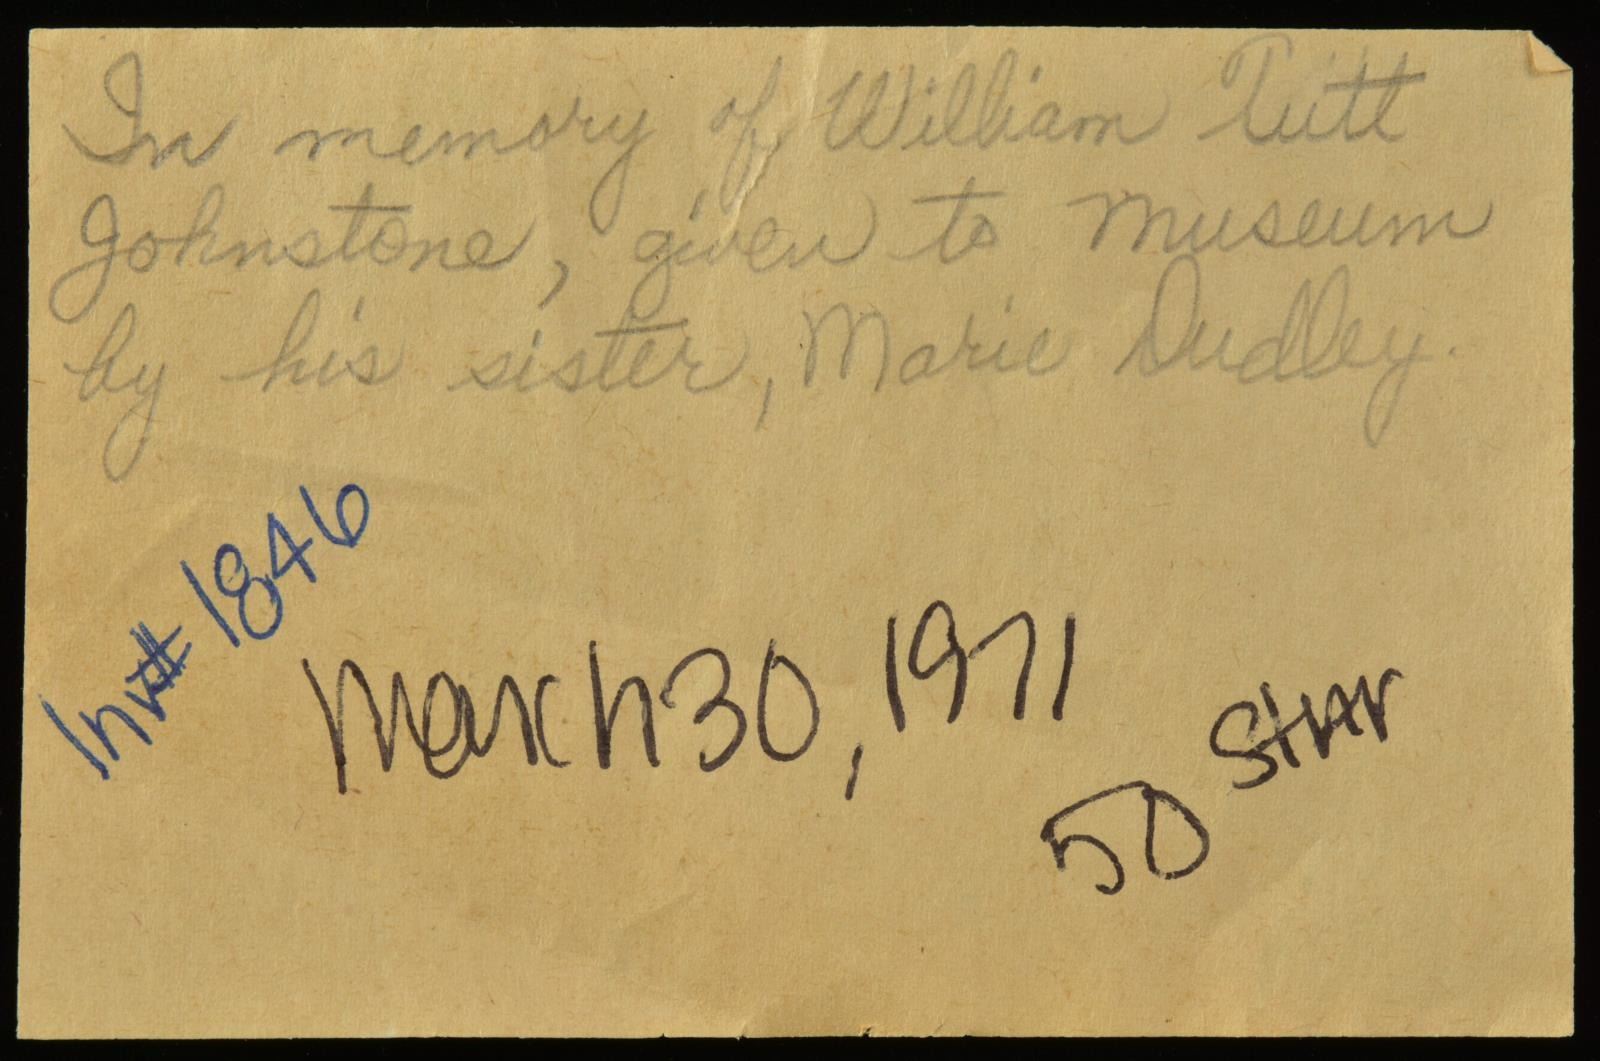 In memory of William Tutt
Johnstone, given to museum
by his sister, Marie Dudley.
Inv# 1846
March 30, 1971
50 Star